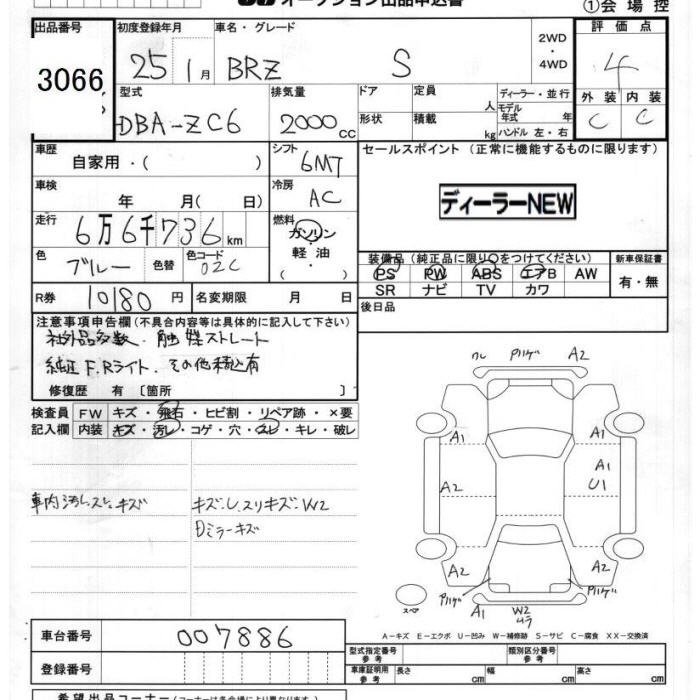 オークション出品申込書
①会場控
出品番号 初度登録年月 車名・グレード 評価点
3066 25 1月 BRZ S 2WD・4WD 4
型式 排気量 ドア 定員 人 ディーラー・並行 外装 内装
DBA-ZC6 2000cc 形状 積載 kg モデル年式 年 ハンドル 左・右 C C
車歴 自家用・( ) シフト 6MT セールスポイント(正常に機能するものに限ります)
車検 年 月( 日) 冷房 AC
ディーラーNEW
走行 6万6千736km 燃料 ガソリン 軽油 ・( )
色 ブルー 色替 色コード 02C
装備品(純正品に限り○をつけてください) 新車保証書
PS PW ABS エアB AW 有・無
SR ナビ TV カワ
R券 10180円 名変期限 月 日 後日品
注意事項申告欄(不具合内容等は具体的に記入して下さい)
社外品多数. 触媒ストレート
純正F.Rライト. その他積込有
修復歴 有〔箇所 〕
検査員 FW キズ・飛石・ヒビ割・リペア跡・×要
記入欄 内装 キズ・汚レ・コゲ・穴・スレ・キレ・破レ
A2
A1 A1
A1
U1
A2
車内汚レ.スレ キズ
W2
Dミラーキズ
A2 A2
A1 W2
スペア
A-キズ E-エクボ U-凹み W-補修跡 S-サビ C-腐食 XX-交換済
車台番号 007886
型式指定番号 参考 類別区分番号 参考
登録番号 車庫証明用 参考 長さ cm 幅 cm 高さ cm
希望出品コーナー(コーナーは各会場により異なります)